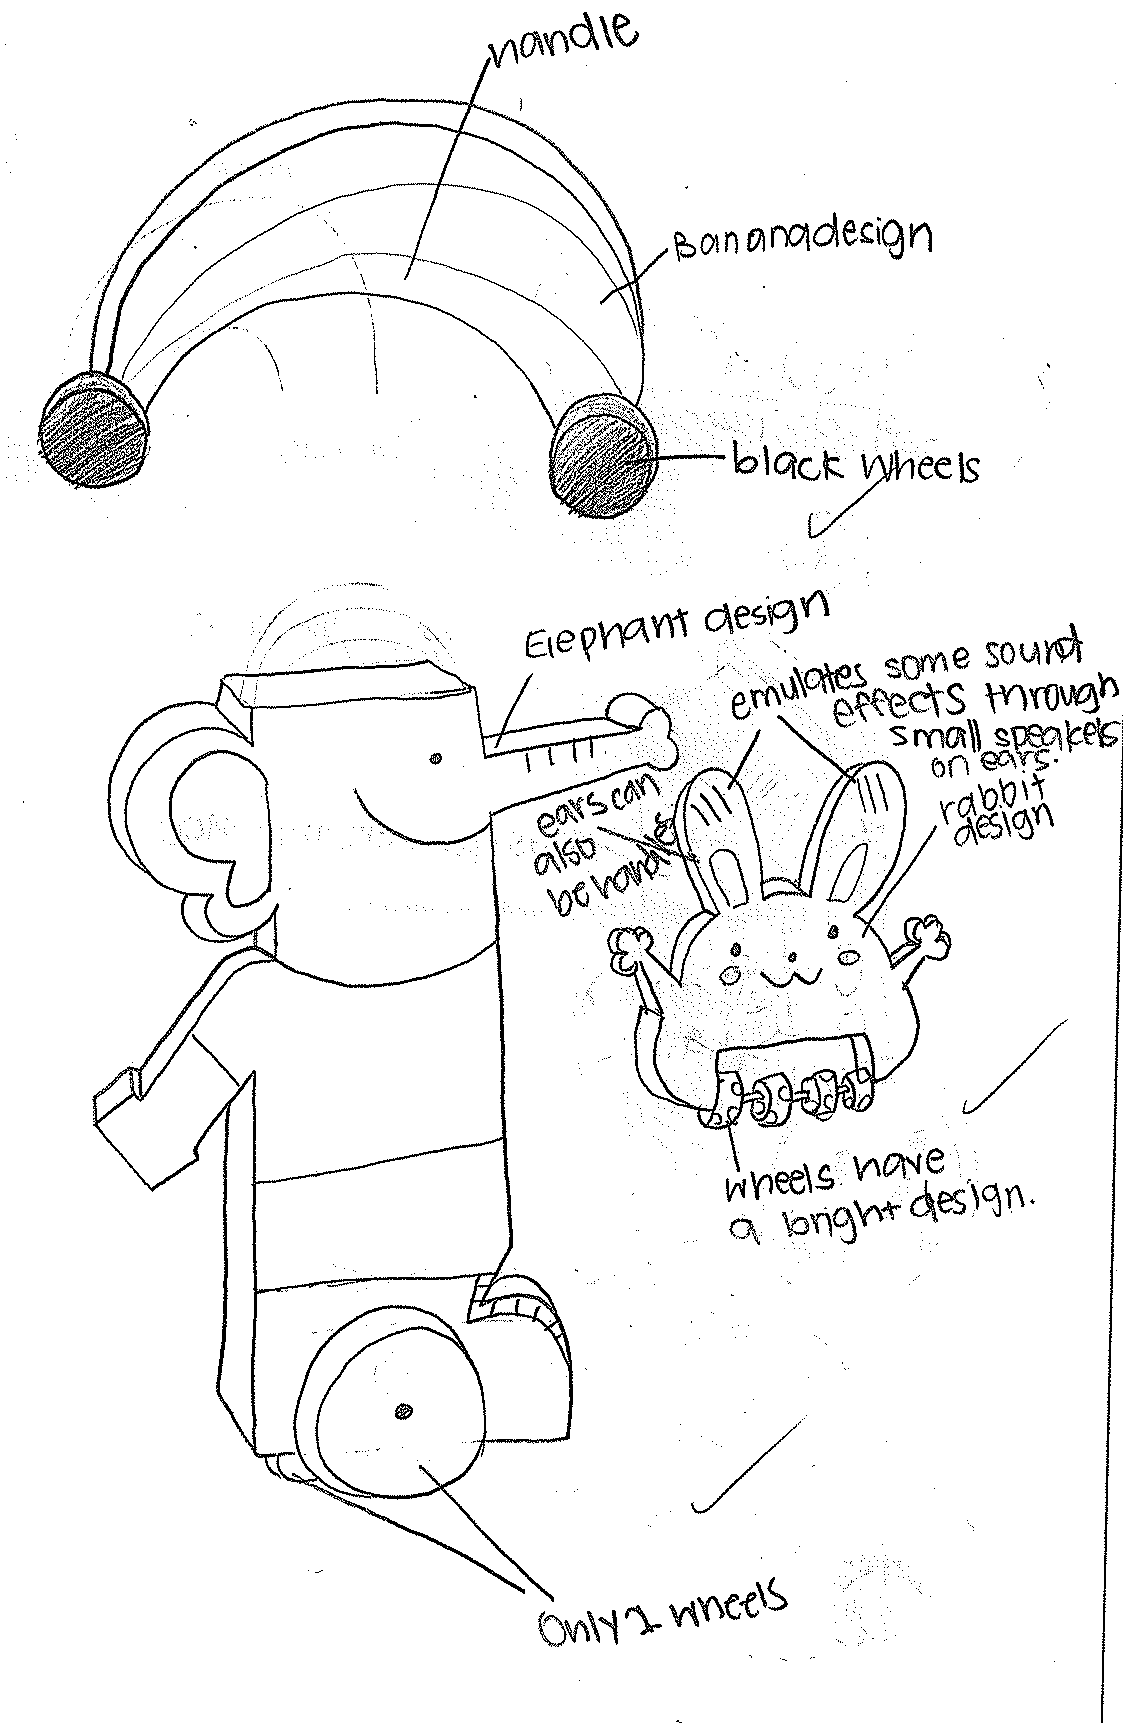 handle
Bananadesign
black wheels
Elephant design
emulates some sound
effects through
small speakers
on ears.
rabbit
design
ears can
also
be handles
wheels have
a bright design.
Only 2 wheels